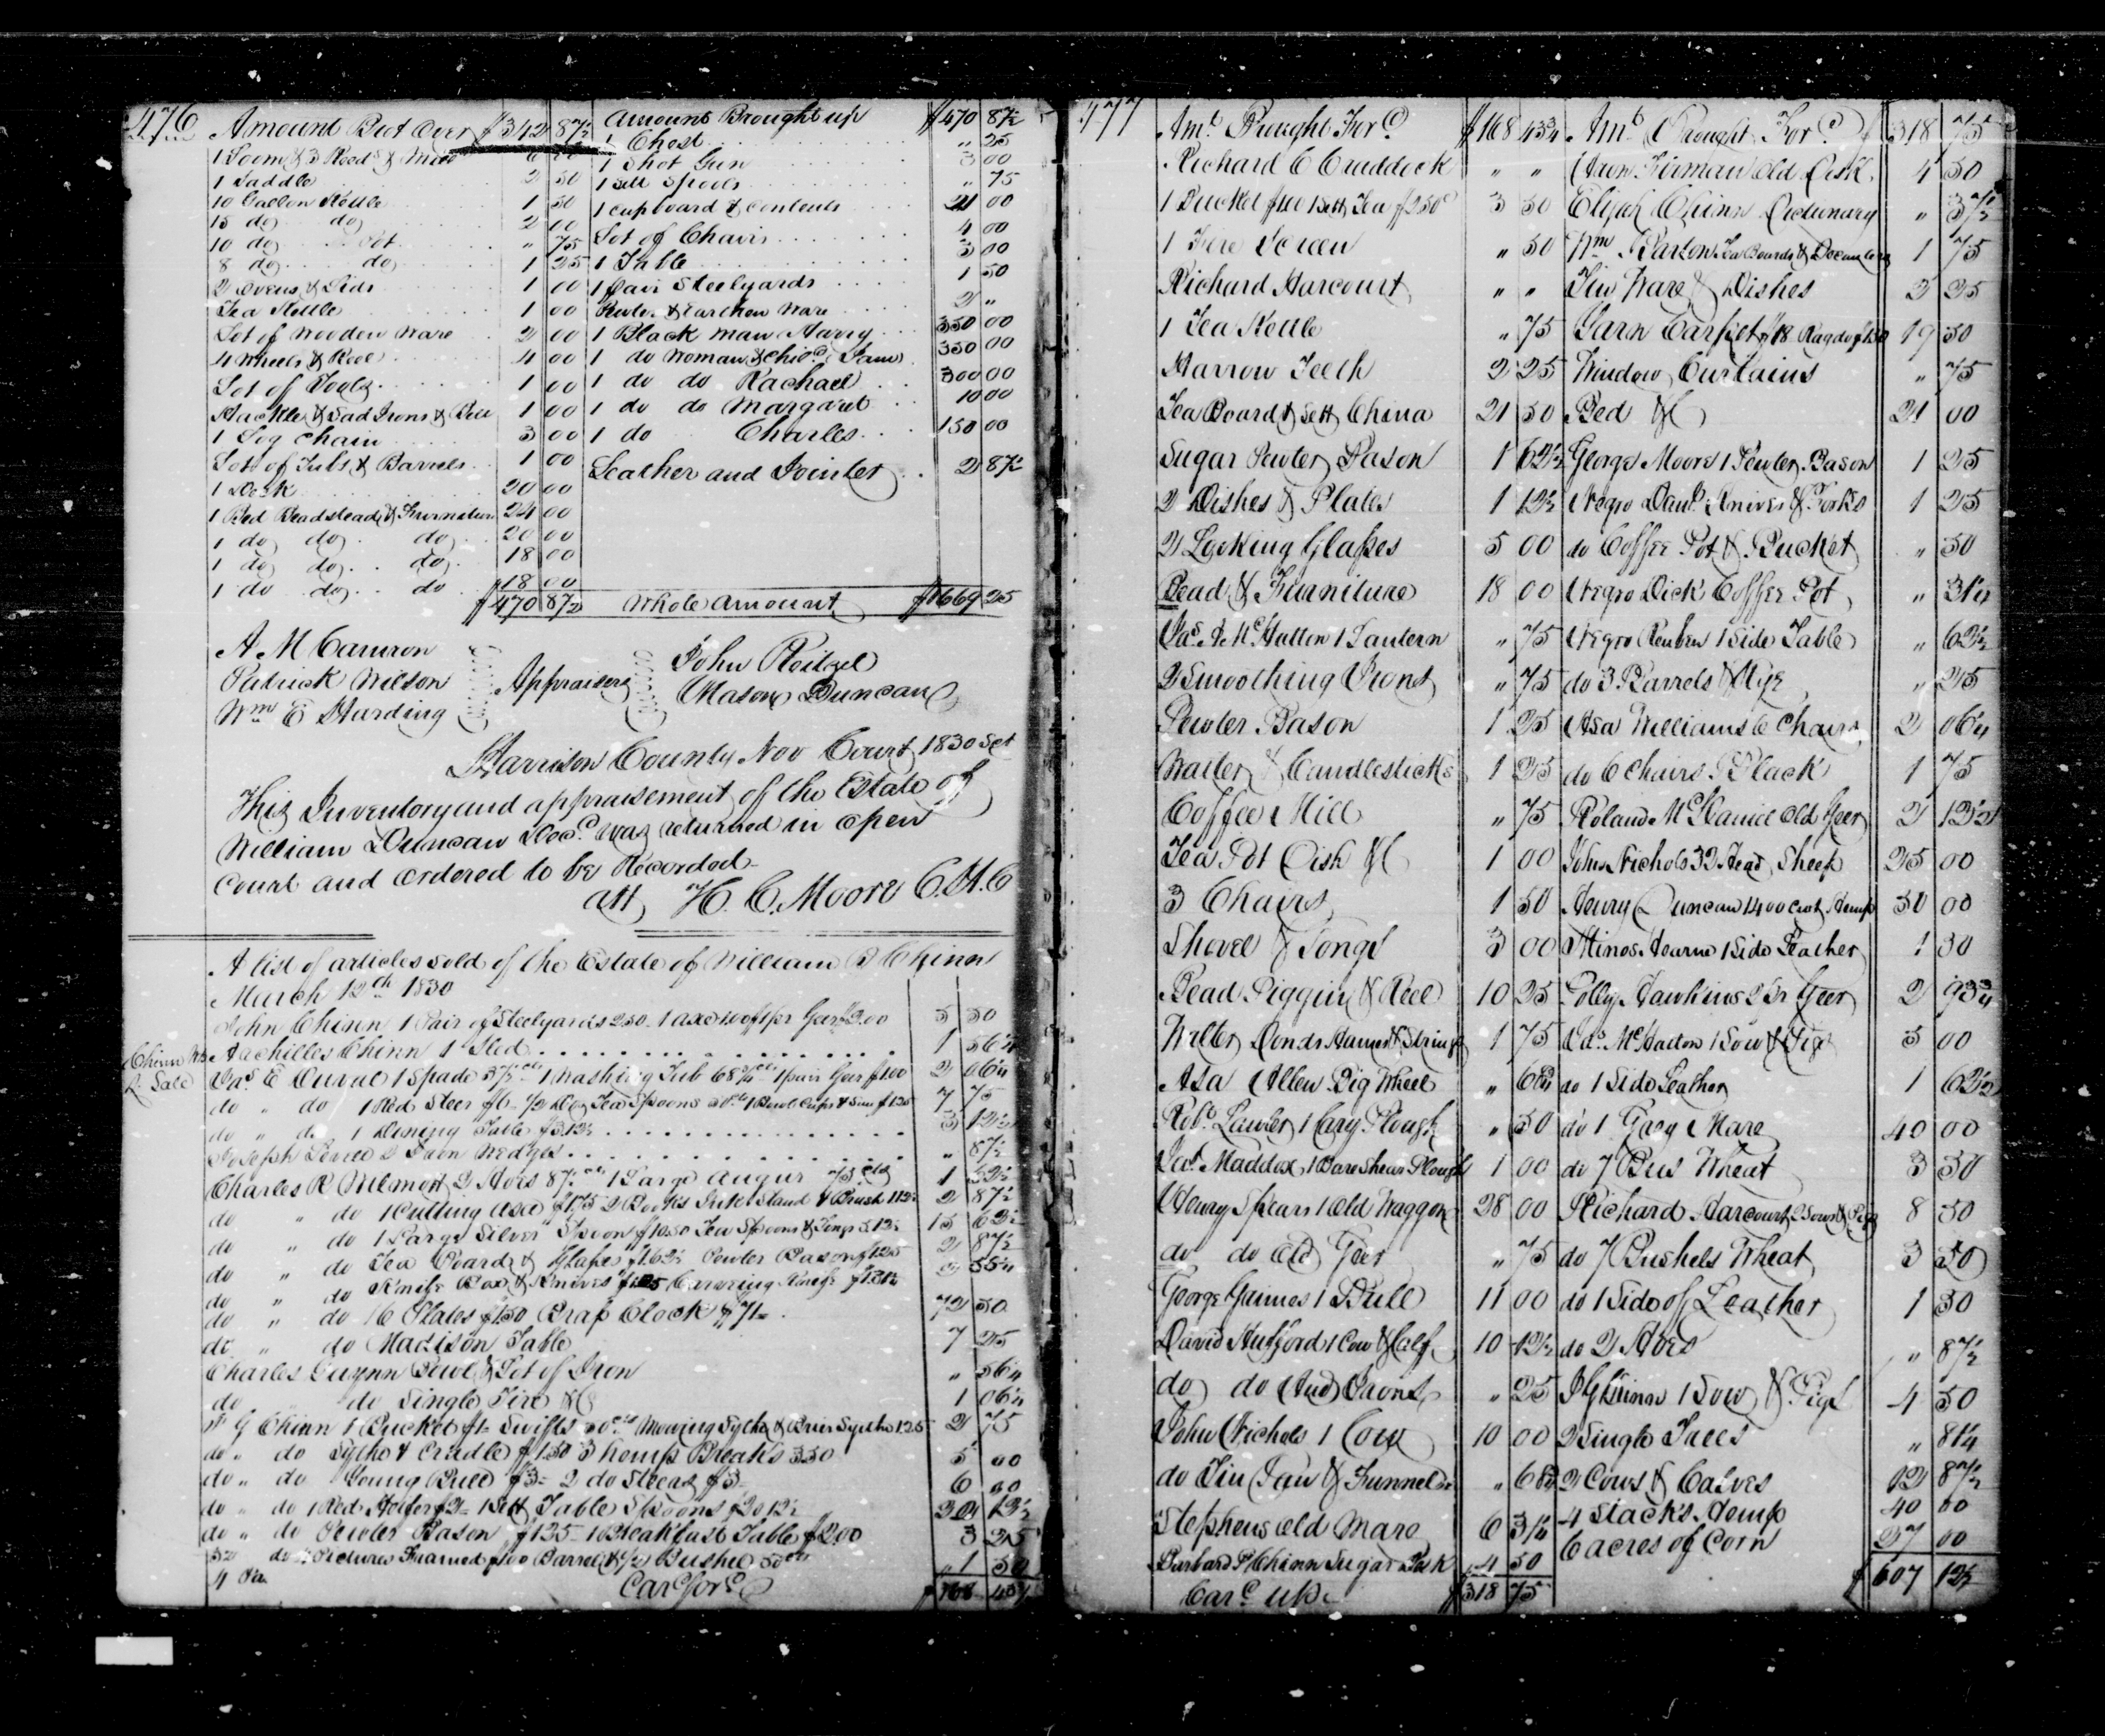 476
Amount Brot Over $342 87½
1 Loom & 3 Reeds &
1 Saddle 2 50
10 Gallon Kettle 1 50
15 do do 2 00
10 do Pot " 75
8 do do 1 25
2 Ovens & Lids 1 00
Tea Kettle 1 00
Lot of Wooden Ware 2 00
4 Wheels & Reel 4 00
Lot of Tools 1 00
Hackle & Sad Irons & Bell 1 00
1 Log Chain 3 00
Lot of Tubs & Barrels 1 00
1 Desk 20 00
1 Bed Beadstead & Furniture 24 00
1 do do do 20 00
1 do do do 18 00
1 do do do 18 00
$470 87½
Amount Brought up $470 87½
1 Chest " 25
1 Shot Gun 3 00
1 Sett Spools " 75
1 Cupboard & Contents 21 00
Lot of Chairs 4 00
1 Table 3 00
1 pair Steelyards 1 50
Pewter & Earthen Ware 2 "
1 Black man Harry 350 00
1 do Woman & Child 350 00
1 do do Rachael 300 00
1 do do Margaret 10 00
1 do Charles 150 00
Leather and Jointer 2 87½
Whole amount $1669 25
A M Cameron
Patrick Wilson
Wm E Harding
Appraisers
John Roitzel
Mason Duncan
Harrison County Nov Court 1830 Sct
This Inventory and appraisement of the Estate of
William Duncan Decd was returned in open
Court and ordered to be Recorded
att H. C. Moore C.H.C
A list of articles sold of the Estate of William B Chinn
March 12th 1830
Chinn Wm
R. Sale
John Chinn 1 Pair of Steelyards 2.50 1 axe 1.00 1 pr Gear $2.00 5 50
Achilles Chinn 1 Sled 1 56¼
Jas E Duval 1 Spade 37½ cts 1 Washing Tub 68¾ cts 1 pair Gear $1.00 2 06¼
do " do 1 Red Steer $6- ½ Doz Tea Spoons 50 cts 1 Bowl Cups & $1.25 7 75
do " do 1 Dining Table $3.12½ 3 12½
Joseph 2 Iron Wedges " 87½
Charles R 2 Hoes 87½ cts 1 Large Augur 75 cts 1 62½
do " do 1 Cutting axe $1.75 2 Books Ink Stand & Brush 1 12½ 2 87½
do " do 1 Large Silver Spoon $10.50 Tea Spoons & Tongs 5.12½ 15 62½
do " do Tea Board & Glasses $1.62½ Pewter Bason $1.25 2 87½
do " do Knife Box & Knives Carveing Knife
do " do 16 Plates $1.50 Brass Clock $71- 72 50
do " do Madison Table 7 25
Charles Guynn Bowl & Lot of Iron " 56¼
do do Single Tire &C 1 06¼
Chinn 1 Bucket $1- Swifts 50 cts Mowing Sythe & Brier Sythe 1.25 2 75
do " do Sythe & Cradle $1.50 3 hemp Breaks 3.50 5 00
do " do Young Bull $3- 2 do Steears $3- 6 00
do " do 1 Red Heifer $2- 1 Sett Table Spoons $20 12½ 22 12½
do " do Pewter Bason $1.25 1 Breakfast Table $2.00 3 25
do Pictures Framed $1.00 Barrel & ½ Bushel 50 cts 1 50
Card ford $168 43¾
477
Amt Brought Ford $168 43¾
Richard C Craddock " "
1 Bucket $1.00 1 Sett Tea $2.50 3 50
1 Fire Screen " 50
Richard Harcourt " "
1 Tea Kettle " 75
Harrow Teeth 2 25
Tea Board & Sett China 21 50
Sugar Pewter Bason 1 62½
2 Dishes & Plates 1 12½
2 Looking Glasses 5 00
Bead & Furniture 18 00
Jas A McHatton 1 Lantern " 75
2 Smoothing Irons " 75
Pewter Bason 1 25
Waiter & Candlesticks 1 25
Coffee Mill " 75
Tea Pot Dish &C 1 00
3 Chairs 1 50
Shovel & Tongs 3 00
Bead Piggin & Reel 10 25
Walter Hames & Strings 1 75
Asa Allen Big Wheel " 68¾
Robt Lawler 1 Cary Plough " 50
Jas Maddox 1 Bareshear Plough 1 00
Henry Spears 1 Old Waggon 28 00
do do Old Geer " 75
George Gaines 1 Bull 11 00
David Hufford 1 Cow & Calf 10 12½
do do And Irons " 25
John Nichols 1 Cow 10 00
do Tin Pan & Funnel &c " 68¾
Stephens old Mare 6 31¼
Barbara P Chinn Sugar Desk 4 50
Card up $318 75
Amt Brought Ford $318 75
Aron Firman Old Desk 4 50
Elijah Chinn Dictionary " 37½
Wm Barton Tea Boards & Decanters 1 75
Tin Ware & Dishes 2 25
Yarn Carpet $18 Rag do $1.50 19 50
Window Curtains " 75
Bed &C 21 00
George Moore 1 Pewter Bason 1 25
Negro Danl Knives & Forks 1 25
do Coffee Pot & Bucket " 50
Negro Dick Coffee Pot " 31¼
Negro Reuben 1 Side Table " 62½
do 3 Barrels & Rye " 25
Asa Williams 6 Chairs 2 06¼
do 6 Chairs Black 1 75
Roland McDaniel Old Geer 2 12½
John Nichols 32 Head Sheep 25 00
Henry Duncan 1400 cwt Hemp 50 00
Minos Hearne 1 Side Leather 1 50
Polly Hawkins 2 Pr Geer 2 93¾
Jas McHatton 1 Sow & Pigs 5 00
do 1 Side Leather 1 62½
do 1 Gray Mare 40 00
do 7 Bus Wheat 3 50
Richard Harcourt 2 Sows & Pigs 8 50
do 7 Bushels Wheat 3 50
do 1 Side of Leather 1 50
do 2 Hoes " 87½
Chinn 1 Sow & Pigs 4 50
2 Single Trees " 81¼
2 Cows & Calves 12 87½
4 Stacks Hemp 40 00
6 acres of Corn 27 00
$607 12½